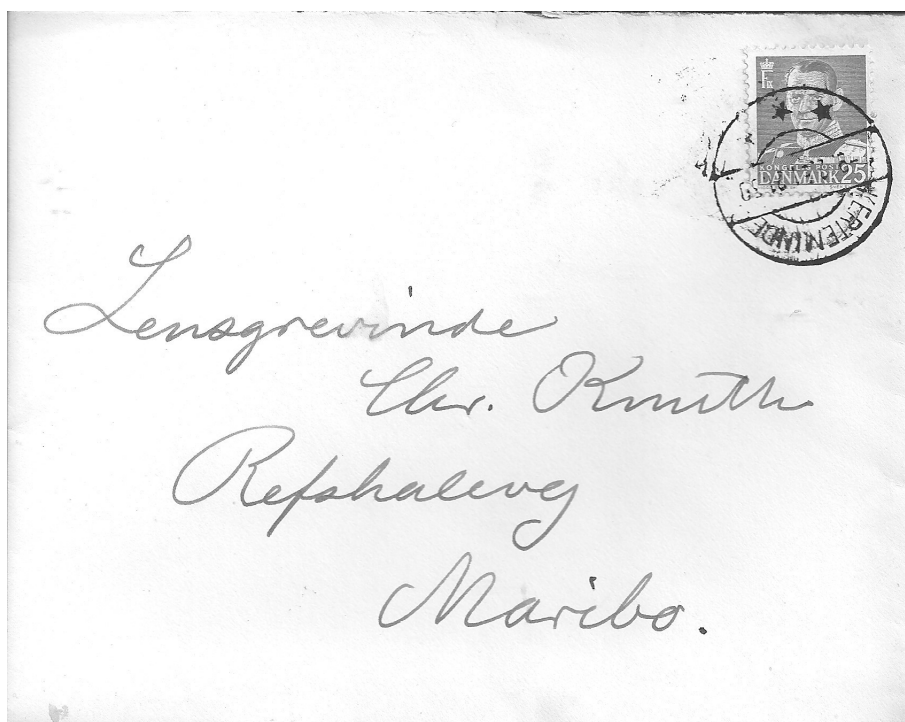 F IX
KONGEL. POST
DANMARK 25
KERTEMINDE
Lensgrevinde
Chr. Knuth
Refshalevej
Maribo.